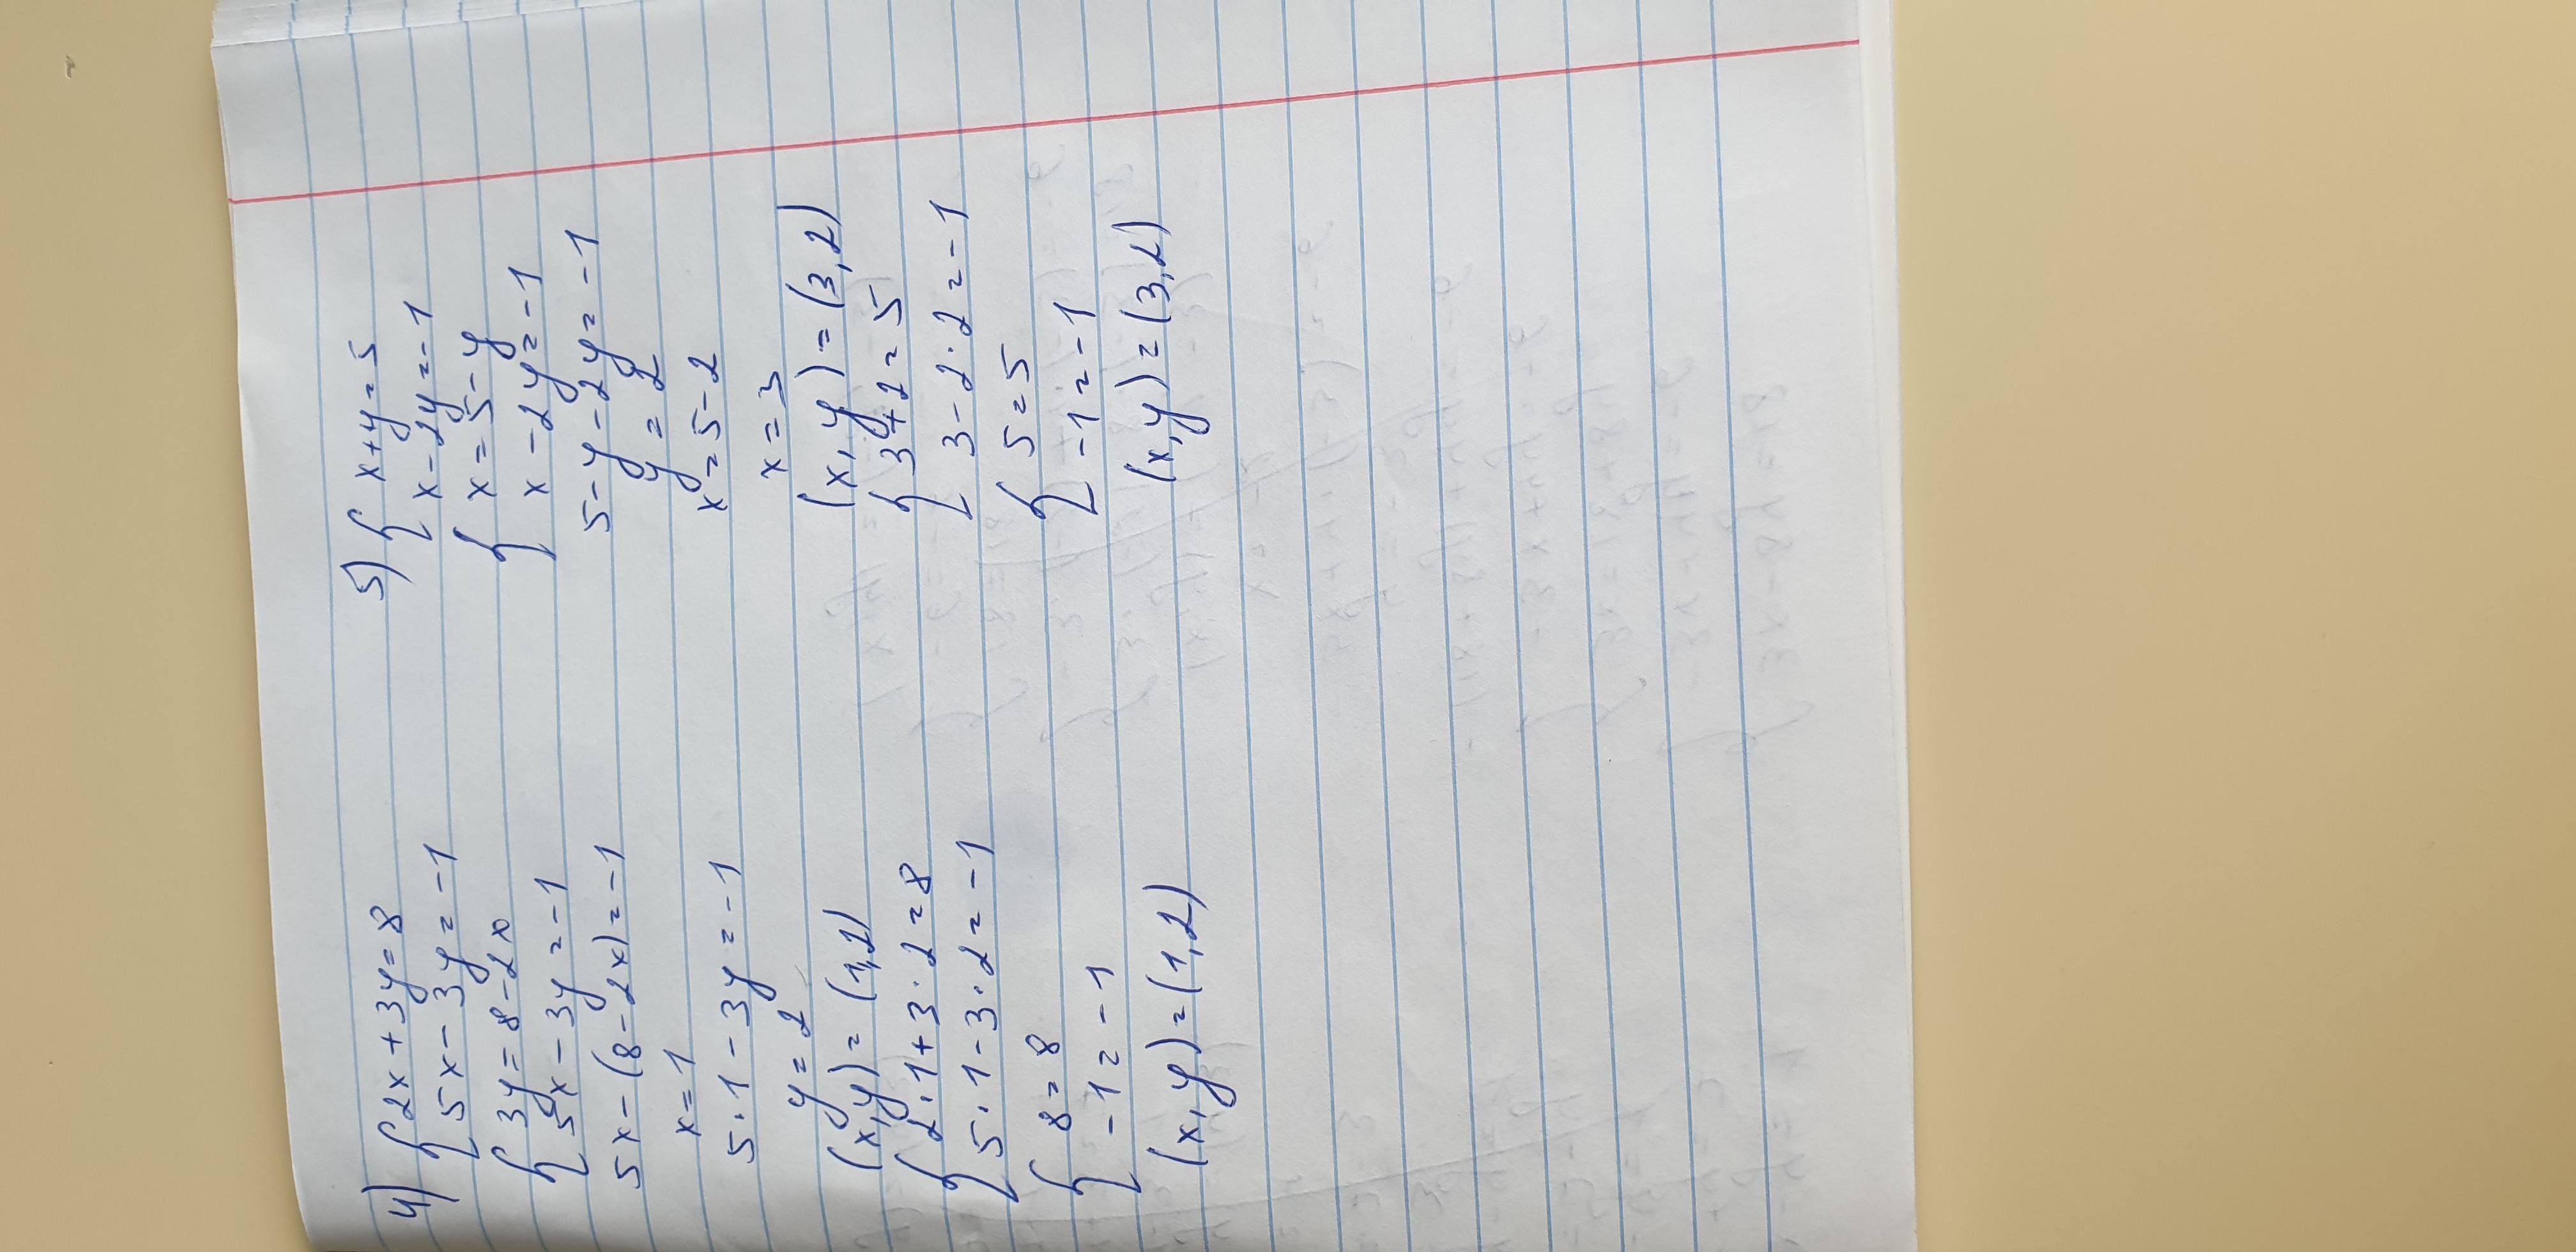 4) { 2x + 3y = 8
5x - 3y = -1
{ 3y = 8 - 2x
5x - 3y = -1
5x - (8 - 2x) = -1
x = 1
5 · 1 - 3y = -1
y = 2
(x, y) = (1, 2)
{ 2 · 1 + 3 · 2 = 8
5 · 1 - 3 · 2 = -1
{ 8 = 8
-1 = -1
(x, y) = (1, 2)
5) { x + y = 5
x - 2y = -1
{ x = 5 - y
x - 2y = -1
5 - y - 2y = -1
y = 2
x = 5 - 2
x = 3
(x, y) = (3, 2)
{ 3 + 2 = 5
3 - 2 · 2 = -1
{ 5 = 5
-1 = -1
(x, y) = (3, 2)